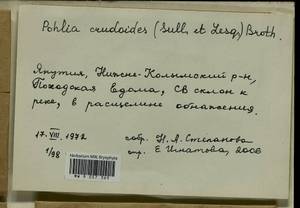 Pohlia crudoides (Sull. et Lesq.) Broth.
Якутия, Нижне-Колымский р-н,
Походская Едома, СВ склон к
реке, в расщелине обнажения.
17. VIII 1972 собр. Н.А. Степанова
1/98 опр. Е. Игнатова, 2006
Herbarium MW, Bryophyta